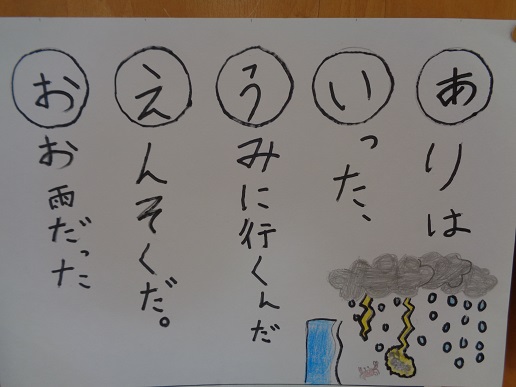 ありは
いった、
うみに行くんだ
えんそくだ。
おお雨だった